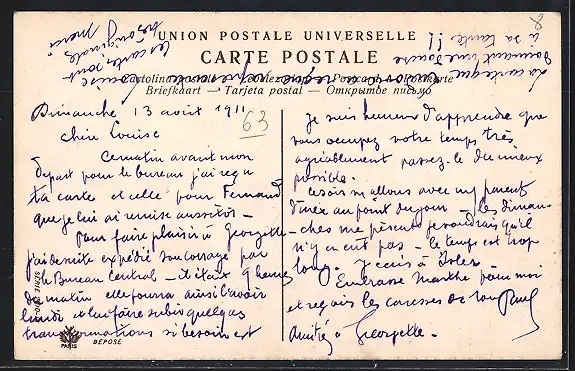 UNION POSTALE UNIVERSELLE
CARTE POSTALE
Briefkaart — Tarjeta postal — Открытое письмо
les cartes sont
très originales
merci
La carte que
à sa tante !!
8
Dimanche 13 août 1911
63
chère Louise
Ce matin avant mon
départ pour le bureau j'ai reçu
ta carte et celle pour Fernand
que je lui ai remise aussitôt —
Pour faire plaisir à Georgette
j'ai de suite expédié son corsage par
le Bureau Central — il était 9 heures
du matin elle pourra ainsi l'avoir
lundi et lui faire subir quelques
transformations si besoin est
Je suis heureux d'apprendre que
vous occupez votre temps très
agréablement passez-le du mieux
possible.
Ce soir nous allons avec mes parents
dîner au point du jour — les diman-
ches me pèsent je voudrais qu'il
n'y en eut pas — le temps est trop
long. J'écris à Jules
Embrasse Marthe pour moi
et reçois les caresses de ton Paul
Amitiés à Georgette.
SÉRIE
PARIS
DÉPOSÉ